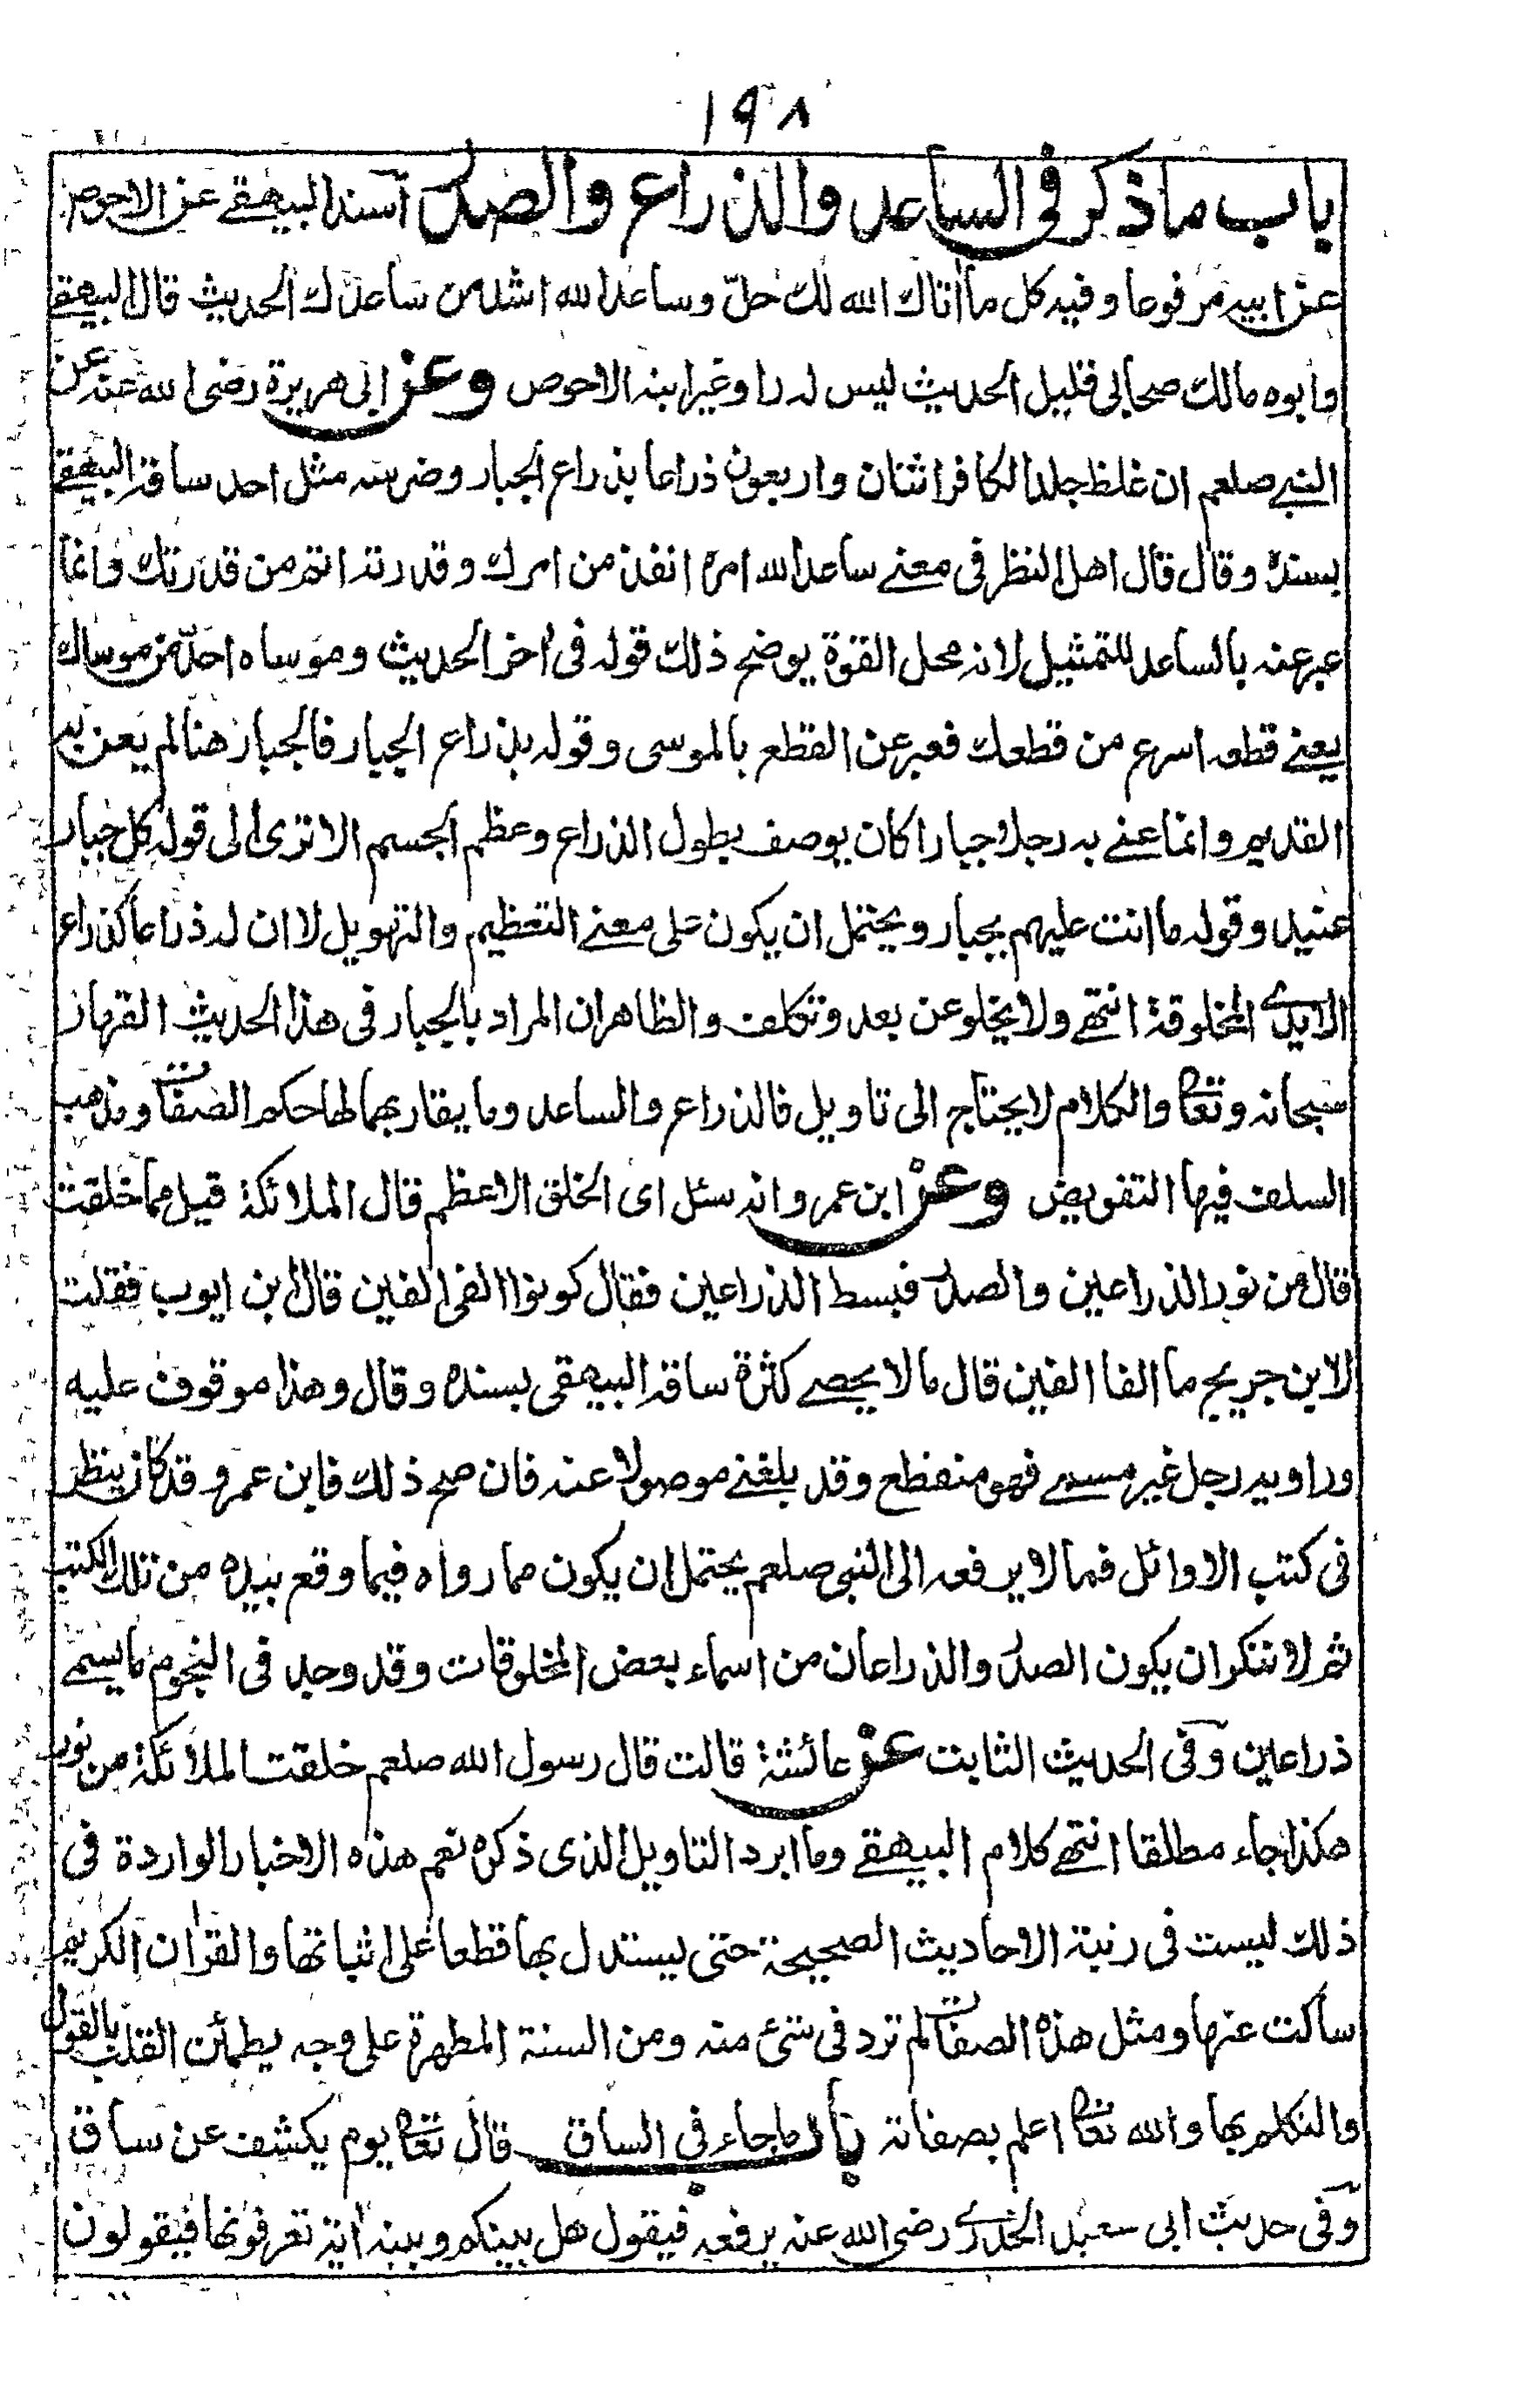 ١٩٨
باب ما ذكر فى الساعد والذراع والصدر أسند البيهقے عن الاحوص
عن ابيه مرفوعا وفيه كل ما أتاك الله لك حلّ وساعد الله اشد من ساعدك الحديث قال البيهقے
وابوه مالك صحابى قليل الحديث ليس له راو غير ابنه الاحوص وعن ابى هريرة رضى الله عنه عن
النبے صلعم ان غلظ جلد الكافر اثنان واربعون ذراعا بذراع الجبار وضرسه مثل احد ساقه البيهقے
بسنده وقال قال اهل النظر فى معنے ساعد الله امره انفذ من امرك وقدرته اتم من قدرتك وانما
عبر عنه بالساعد للتمثيل لانه محل القوة يوضح ذلك قوله فى أخر الحديث وموساه احدّ من موساك
يعنے قطعه اسرع من قطعك فعبر عن القطع بالموسى وقوله بذراع الجبار فالجبار هنا لم يعن به
القديم وانما عنے به رجلا جبارا كان يوصف بطول الذراع وعظم الجسم الا ترى الى قوله كل جبار
عنيد وقوله ما انت عليهم بجبار ويحتمل ان يكون على معنے التعظيم والتهويل لا ان له ذراعا كذراع
الايدے المخلوقة انتهے ولا يخلو عن بعد وتكلف والظاهر ان المراد بالجبار فى هذا الحديث القهار
سبحانه وتعا والكلام لا يحتاج الى تاويل فالذراع والساعد وما يقاربهما لها حكم الصفات ومذهب
السلف فيها التفويض وعن ابن عمرو انه سئل اى الخلق الاعظم قال الملائكة قيل مما خلقت
قال من نور الذراعين والصدر فبسط الذراعين فقال كونوا الفى الفين قال ابن ايوب فقلت
لابن جريج ما الفا الفين قال ما لا يحصے كثرة ساقه البيهقى بسنده وقال وهذا موقوف عليه
وراويه رجل غير مسمے فهو منقطع وقد بلغنے موصولا عنه فان صح ذلك فابن عمرو قد كان ينظر
فى كتب الاوائل فما لا يرفعه الى النبى صلعم يحتمل ان يكون مما رواه فيما وقع بيده من تلك الكتب
ثم لا ننكر ان يكون الصدر والذراعان من اسماء بعض المخلوقات وقد وجد فى النجوم ما يسمے
ذراعين وفى الحديث الثابت عن عائشة قالت قال رسول الله صلعم خلقت الملائكة من نور
هكذا جاء مطلقا انتهے كلام البيهقے وما ابرد التاويل الذى ذكره نعم هذه الاخبار الواردة فى
ذلك ليست فى رتبة الاحاديث الصحيحة حتى يستدل بها قطعا على اثباتها والقرأن الكريم
ساكت عنها ومثل هذه الصفات لم ترد فى شئ منه ومن السنة المطهرة على وجه يطمئن القلب بالقول
والتكلم بها والله تعا اعلم بصفاته باب ما جاء فى الساق قال تعا يوم يكشف عن ساق
وفى حديث ابى سعيد الخدرے رضى الله عنه يرفعه فيقول هل بينكم وبينه أية تعرفونها فيقولون